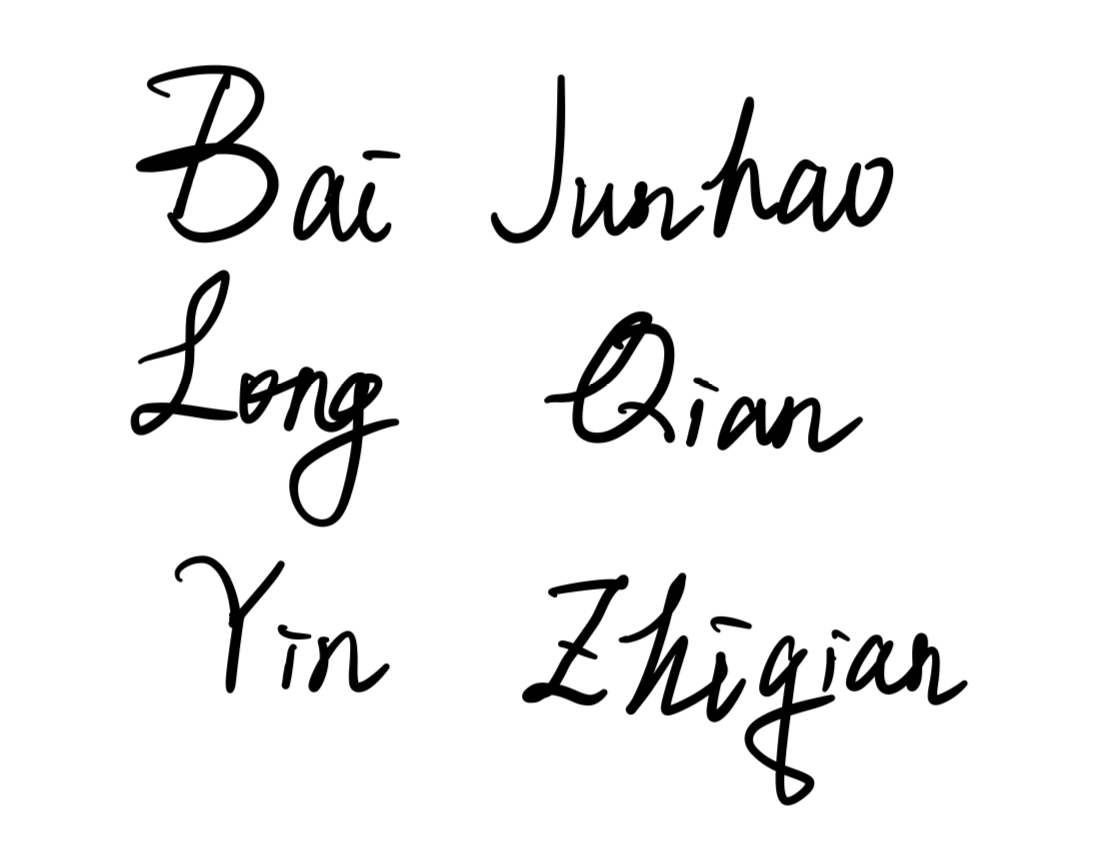 Bai Junhao
Long Qian
Yin Zhiqian